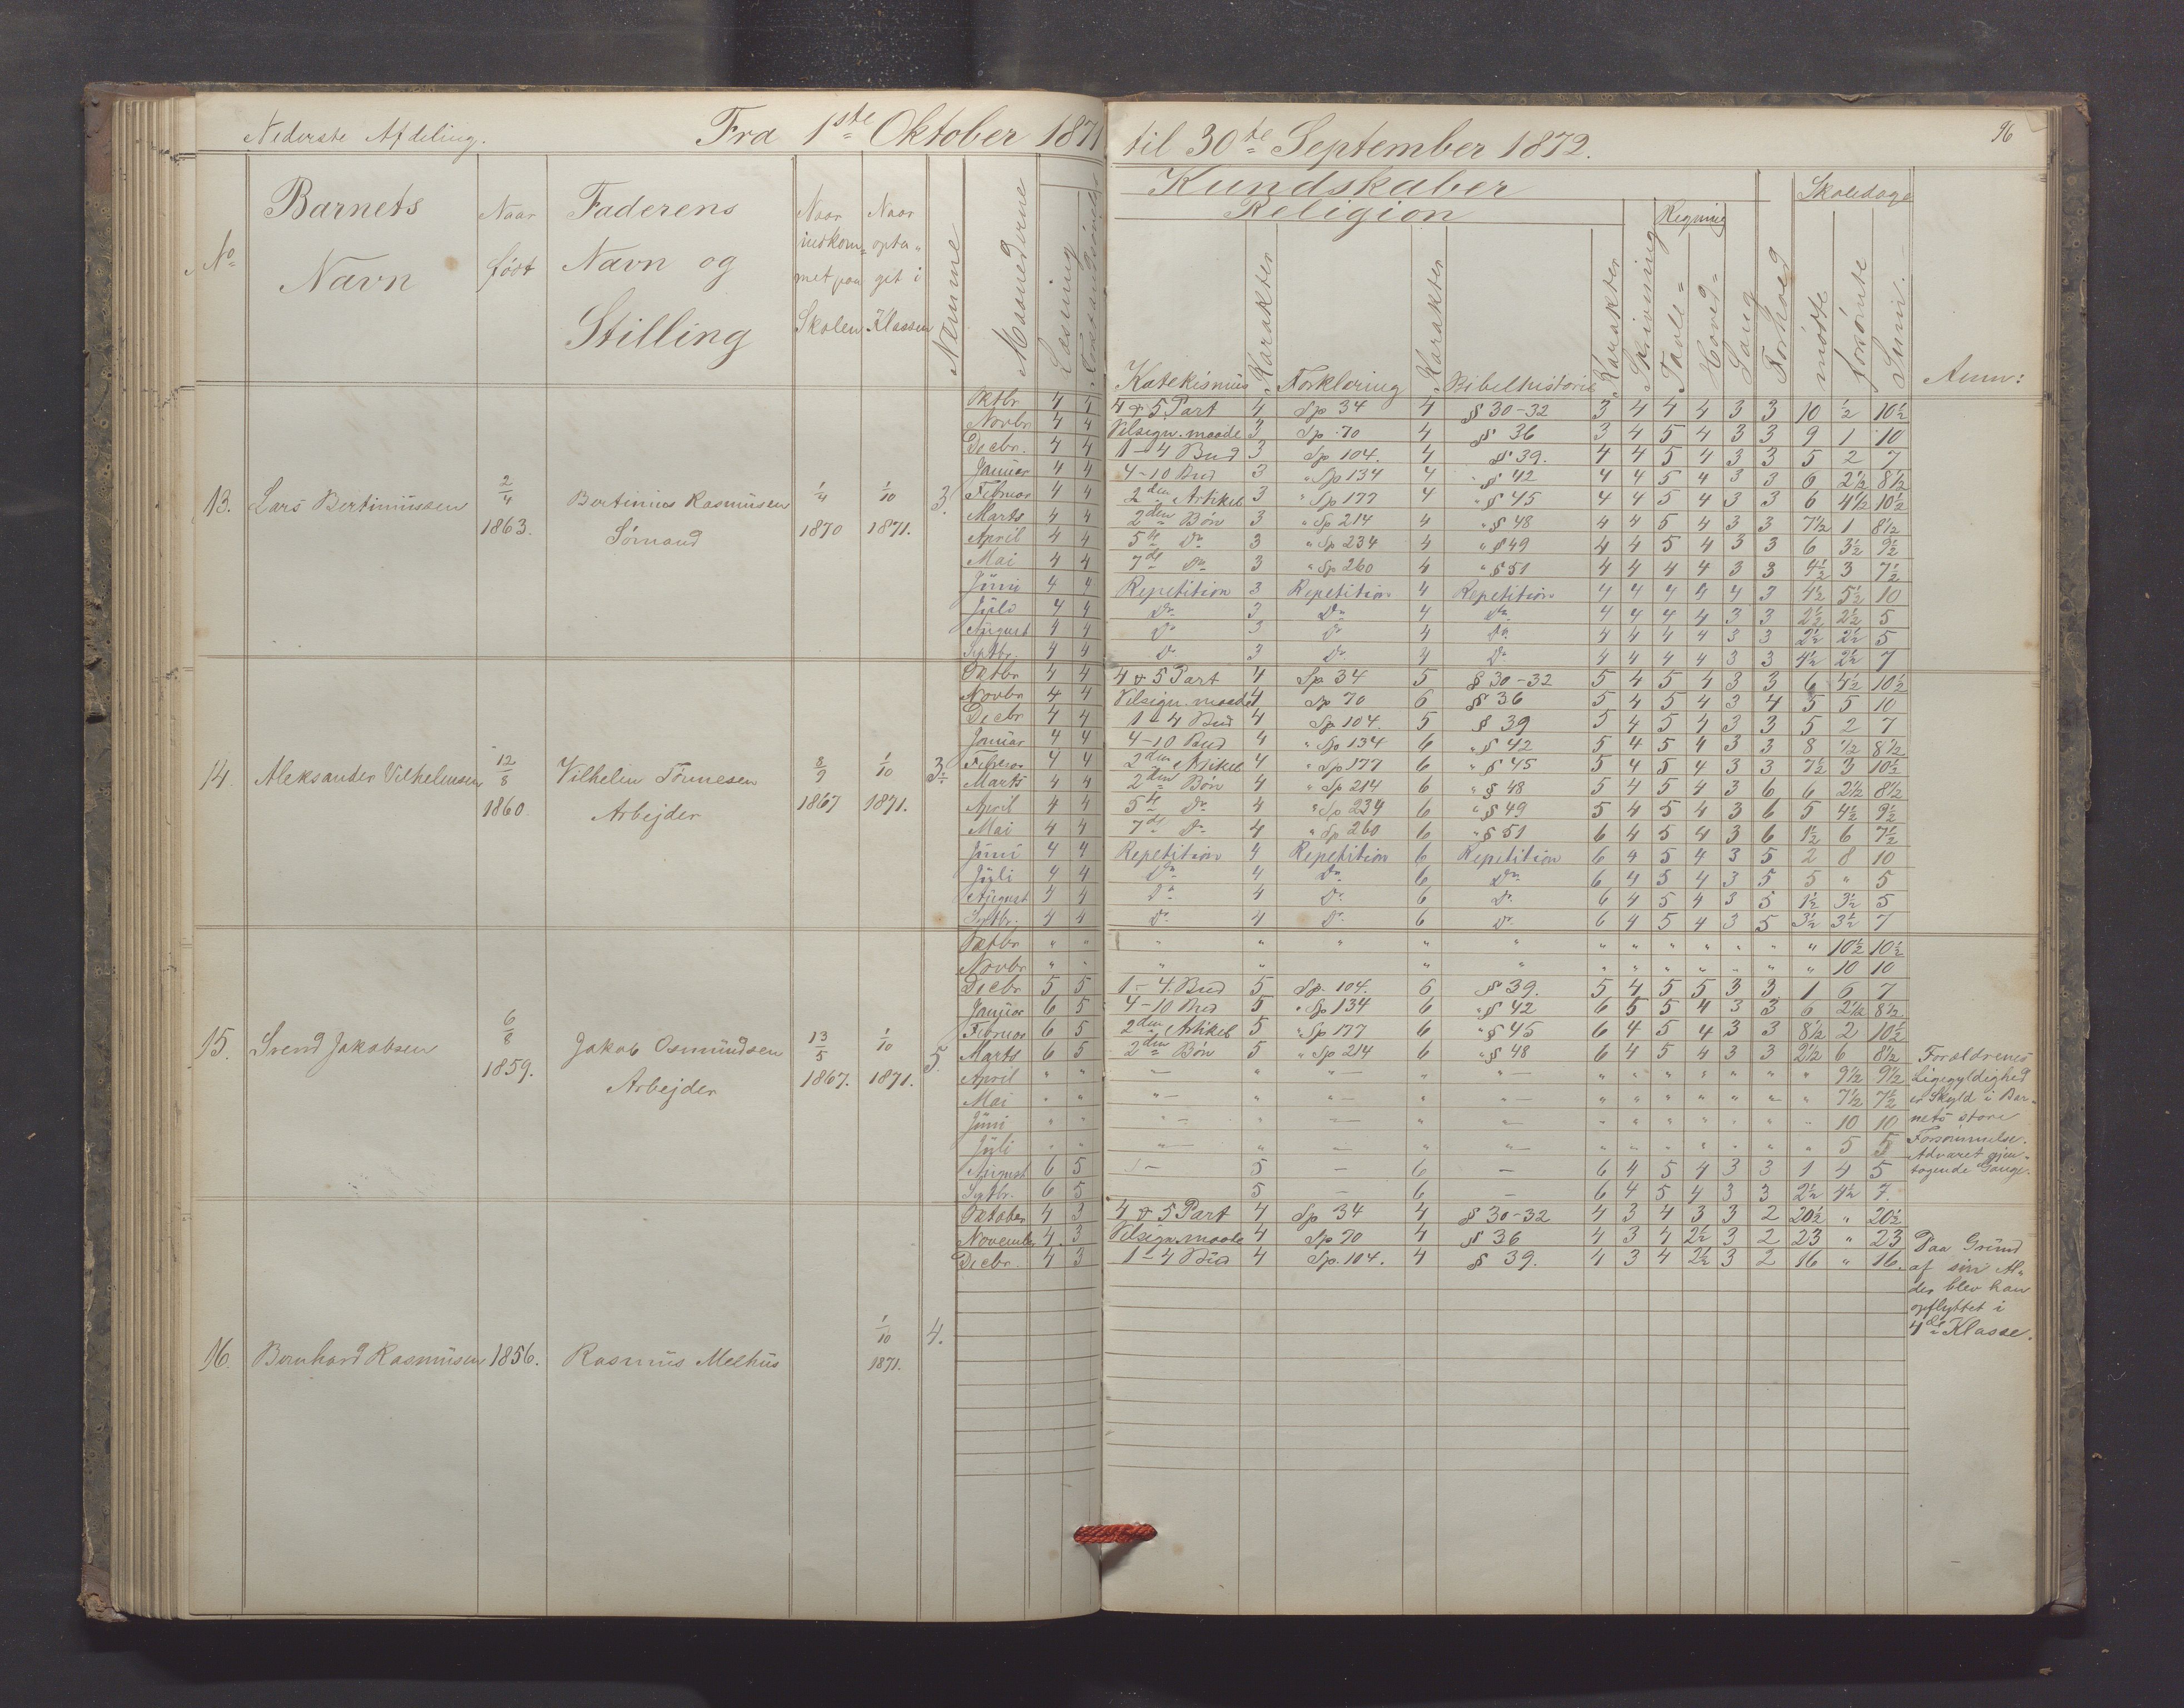 Nederste Afdeling. Fra 1ste Oktober 1871 til 30te September 1872. 96
Kundskaber Skoledage
Religion Regning
No Barnets Navn Naar født Faderens Navn og Stilling Naar indkommet paa Skolen Naar optagit i Klassen Nemme Maanederne Læsning Katekismus Karakter Forklering Karakter Bibelhistorie Karakter Skrivning Tavle= Hoved= Sang Forhold mødte forsømte Sum. Anm:
13. Lars Bertiniussen 2/4 1863. Bertinius Rasmussen Sömand 1/4 1870 1/10 1871. 3.
Oktbr 4 4 4 & 5 Part 4 Sp 34 4 § 30-32 3 4 4 4 3 3 10 ½ 10½
Novbr 4 4 Velsign. maade 3 Sp 70 4 § 36 3 4 5 4 3 3 9 1 10
Decbr. 4 4 1-4 Bud 3 Sp 104. 4 § 39. 4 4 5 4 3 3 5 2 7
Januar 4 4 4-10 Bud 3 " Sp 134 4 " § 42 4 4 5 4 3 3 6 2½ 8½
Februar 4 4 2den Artikel 3 " Sp 177 4 " § 45 4 4 5 4 3 3 6 4½ 10½
Marts 4 4 2den Bön 3 " Sp 214 4 " § 48 4 4 5 4 3 3 7½ 1 8½
April 4 4 5te Do 3 " Sp 234 4 " § 49 4 4 5 4 3 3 6 3½ 9½
Mai 4 4 7de Do 3 " Sp 260 4 " § 51 4 4 4 4 3 3 4½ 3 7½
Juni 4 4 Repetition 3 Repetition 4 Repetition 4 4 4 4 4 3 4½ 5½ 10
Juli 4 4 Do 3 Do 4 Do 4 4 4 4 3 3 2½ 2½ 5
August 4 4 Do 3 Do 4 Do 4 4 4 4 3 3 2½ 2½ 5
Septbr. 4 4 Do 3 Do 4 Do 4 4 4 4 3 3 4½ 2½ 7
14. Aleksander Vilhelmsen 12/8 1860. Vilhelm Tönnesen Arbejder 8/7 1867 1/10 1871. 3½
Oktbr 4 4 4 & 5 Part 4 Sp 34 5 § 30-32 5 4 5 4 3 3 6 4½ 10½
Novbr 4 4 Velsign. maade 4 Sp 70 6 § 36 5 4 5 4 3 4 5 5 10
Decbr 4 4 1-4 Bud 4 Sp 104. 5 § 39 5 4 5 4 3 3 5 2 7
Januar 4 4 4-10 Bud 4 " Sp 134 6 " § 42 5 4 5 4 3 3 8 ½ 8½
Februar 4 4 2den Artikel 4 " Sp 177 6 " § 45 5 4 5 4 3 3 7½ 3 10½
Marts 4 4 2den Bön 4 " Sp 214 6 " § 48 5 4 5 4 3 6 6 2½ 8½
April 4 4 5te Do 4 " Sp 234 6 " § 49 5 4 5 4 3 6 5 4½ 9½
Mai 4 4 7de Do 4 " Sp 260 6 " § 51 6 4 5 4 3 6 1½ 6 7½
Juni 4 4 Repetition 4 Repetition 6 Repetition 6 4 5 4 3 5 2 8 10
Juli 4 4 Do 4 Do 6 Do 6 4 5 4 3 5 5 " 5
August 4 4 Do 4 Do 6 Do 6 4 5 4 3 5 1½ 3½ 5
Septbr. 4 4 Do 4 Do 6 Do 6 4 5 4 3 5 3½ 3½ 7
15. Svend Jakobsen 6/8 1859. Jakob Osmundsen Arbejder 13/5 1867. 1/10 1871. 5.
Oktbr " " " " " " " " " " " " " " 10½ 10½
Novbr " " " " " " " " " " " " " 10 10
Decbr 5 5 1-4. Bud 5 Sp. 104. 6 § 39. 5 4 5 5 3 3 1 6 7
Januar 6 5 4-10 Bud 5 " Sp 134 6 " § 42 6 5 5 4 3 3 6 2½ 8½
Februar 6 5 2den Artikel 5 " Sp 177 6 " § 45 6 4 5 4 3 3 8½ 2 10½
Marts 6 5 2den Bön 5 " Sp 214 6 " § 48 6 4 5 4 3 3 2½ 6 8½
April " " "— " "— " "— " " " " " " " 9½ 9½
Mai " " "— " "— " "— " " " " " " " 7½ 7½
Juni " " "— " "— " "— " " " " " " " 10 10
Juli " " "— " — " "— " " " " " " " 5 5
August 6 5 — 5 — 6 — 6 4 5 4 3 3 1 4 5
Septbr. 6 5 5 — 6 — 6 4 5 4 3 3 2½ 4½ 7.
Forældrenes
Ligegyldighed
er Skyld i Bar-
nets store
Forsömmelse.
Advaret gjen-
tagende Gange.
16. Bernhard Rasmusen 1856. Rasmus Melhus 1/10 1871. 4.
Oktober 4 3 4 & 5 Part 4 Sp 34 4 § 30-32 4 3 4 3 3 2 20½ " 20½
November 4. 3 Velsign. maade 4 Sp 70 4 § 36 4 3 4 2½ 3 2 23 " 23
Decbr. 4 3 1-4 Bud 4 Sp. 104. 4 § 39. 4 3 4 2½ 3 2 16 " 16.
Paa Grund
af sin Al-
der blev han
opflyttet i
4de Klasse.